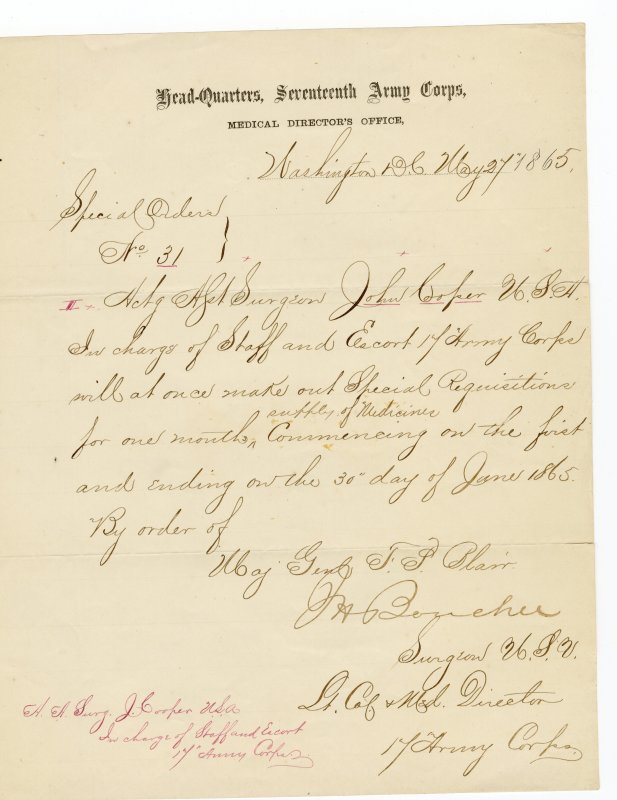 Head-Quarters, Seventeenth Army Corps,
MEDICAL DIRECTOR'S OFFICE,
Washington D.C. May 27" 1865.
Special Orders
No. 31 }
II. Actg Asst Surgeon John Cooper U.S.A.
In charge of Staff and Escort 17" Army Corps
will at once make out Special Requisitions
supply of Medicines
for one months ^ Commencing on the first
and ending on the 30" day of June 1865.
By order of
Maj Genl F. P. Blair
J H Boucher
Surgeon U.S.V.
Lt. Col & Med. Director
17" Army Corps
A. A. Surg. J. Cooper U.S.A
In charge of Staff and Escort
17" Army Corps